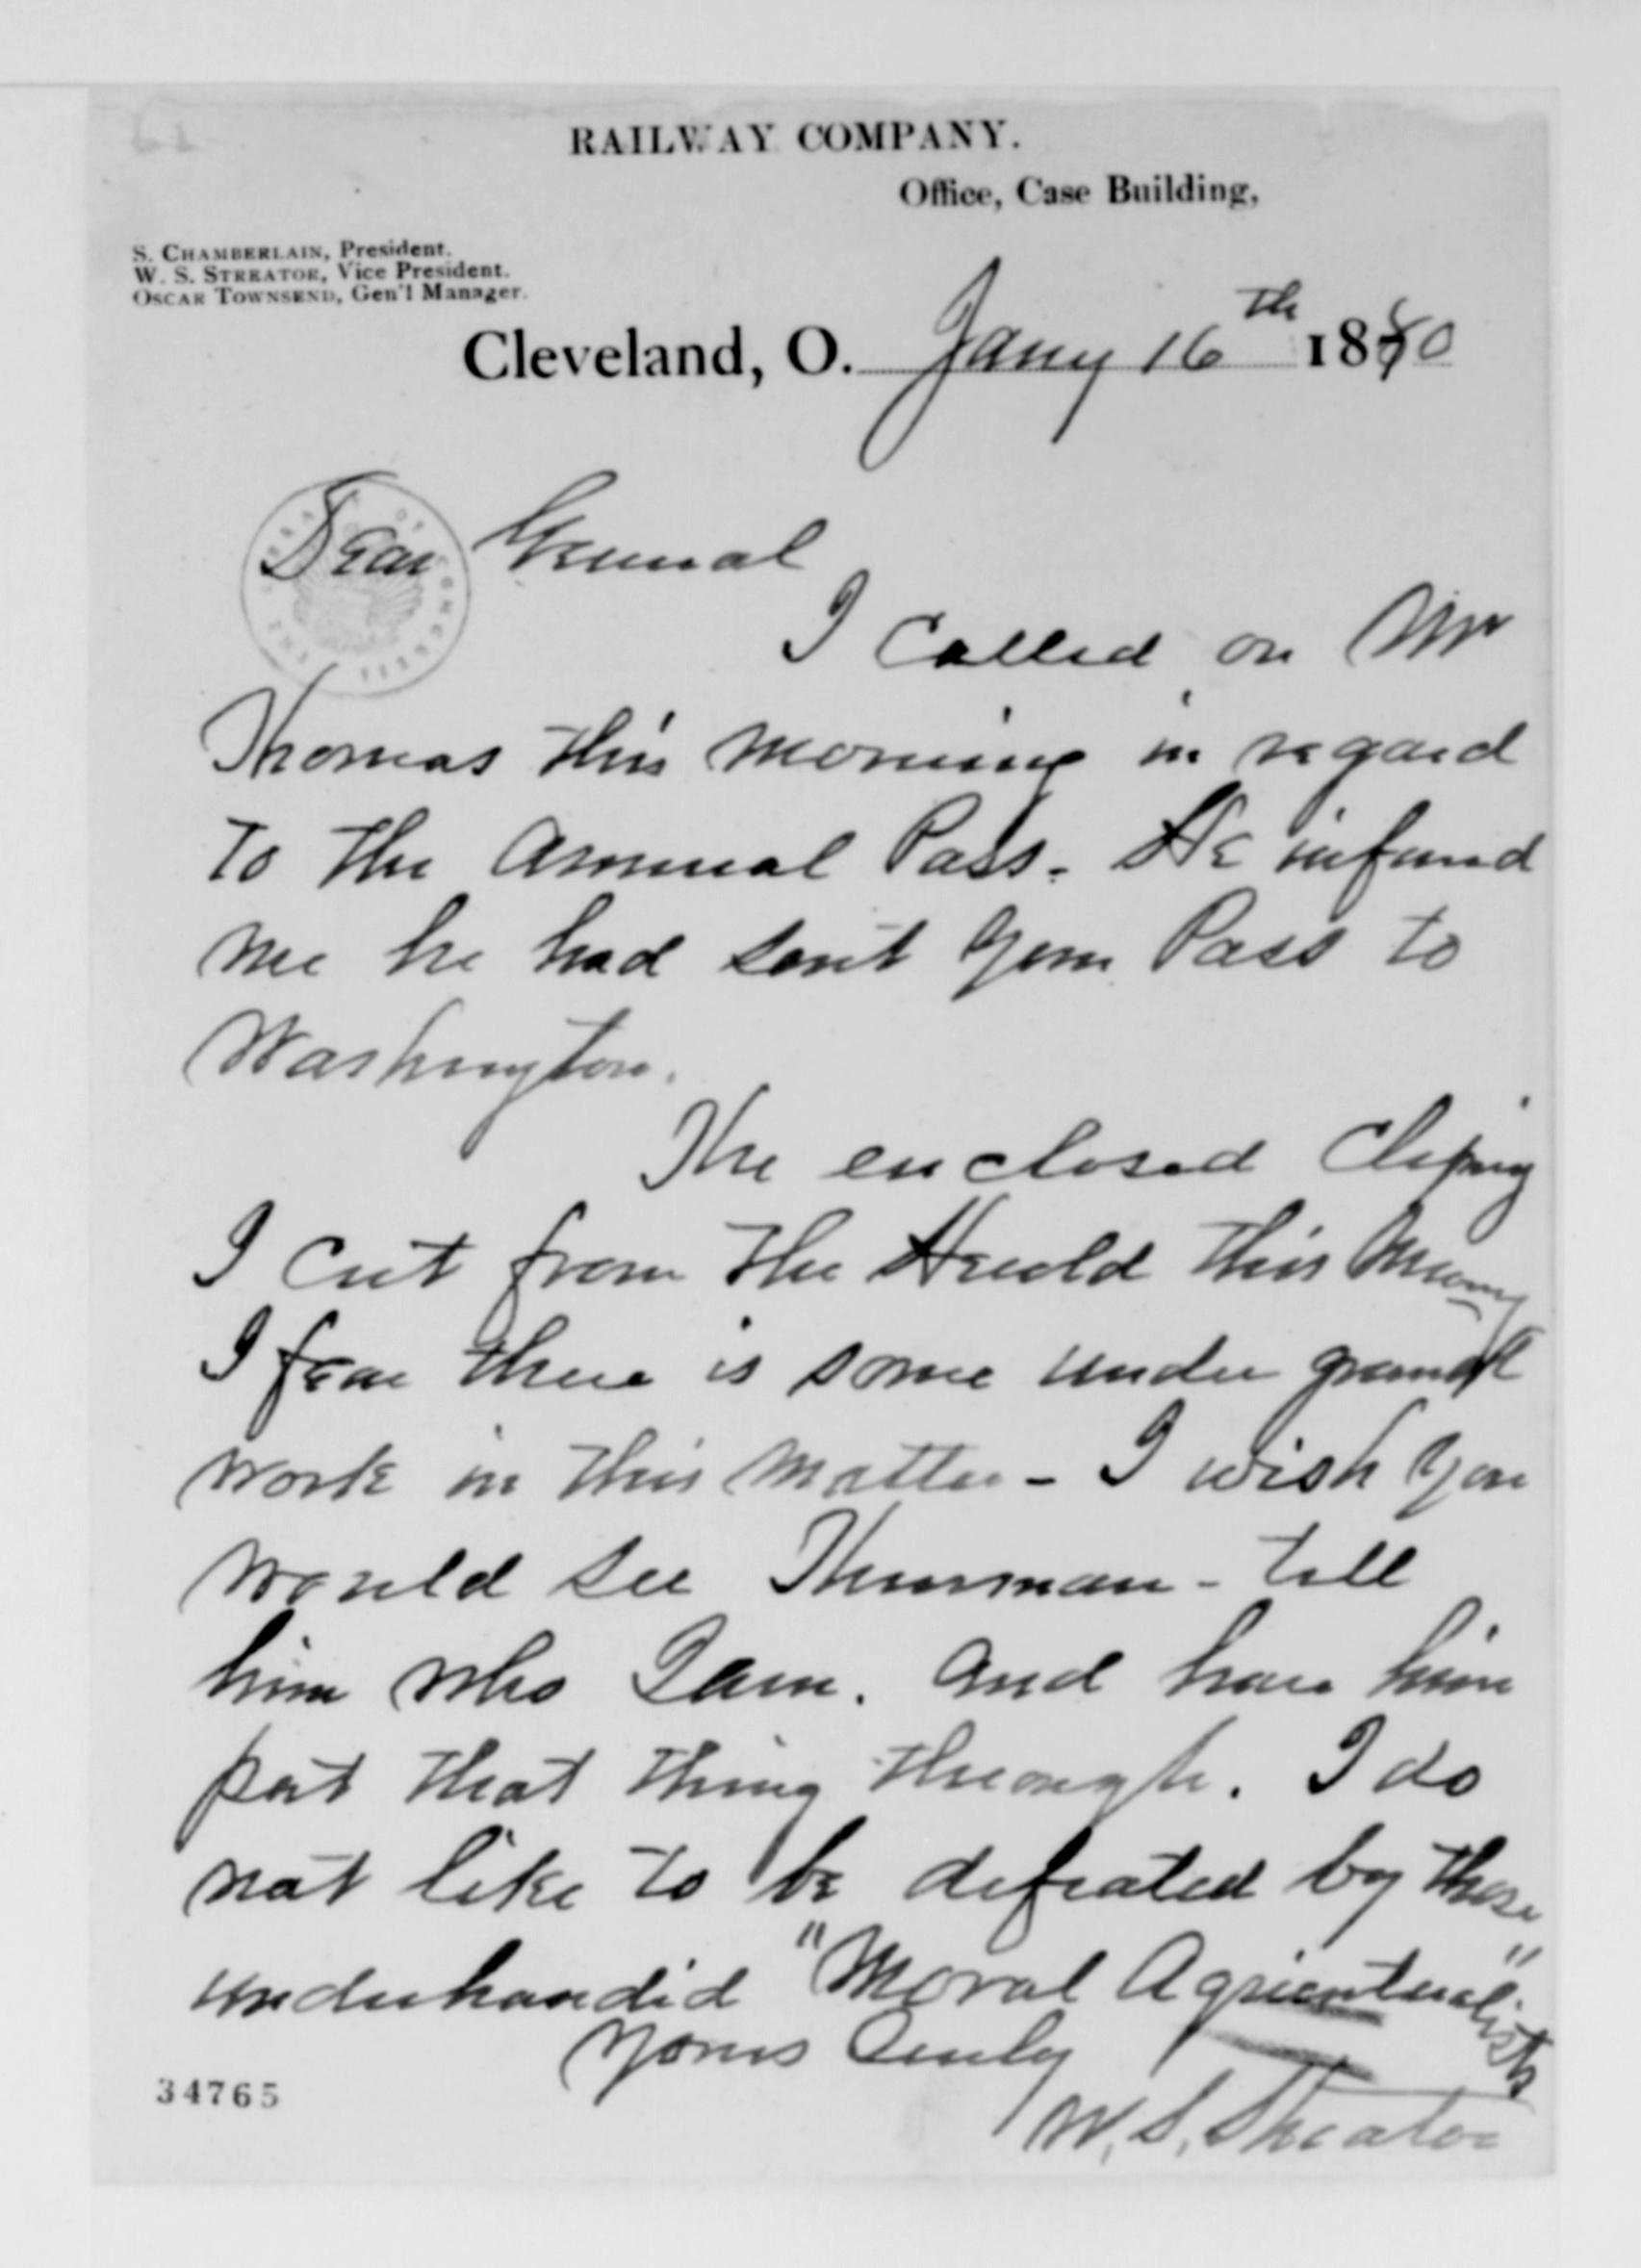 RAILWAY COMPANY.
Office, Case Building,
S. CHAMBERLAIN, President.
W. S. STREATOR, Vice President.
OSCAR TOWNSEND, Gen'l Manager.
Cleveland, O. Jany 16th 1880
Dear General
I Called on Mr
Thomas this morning in regard
to the Annual Pass. He infomd
me he had sent your Pass to
Washington.
The enclosed Cliping
I cut from the Herald this Morng
I fear there is some under ground
work in this matter - I wish you
would see Thurman - tell
him who I am. And have him
put that thing through. I do
not like to be defeated by these
underhandid "Moral Agriculturalists"
Yours Truly
W. S. Streator
34765